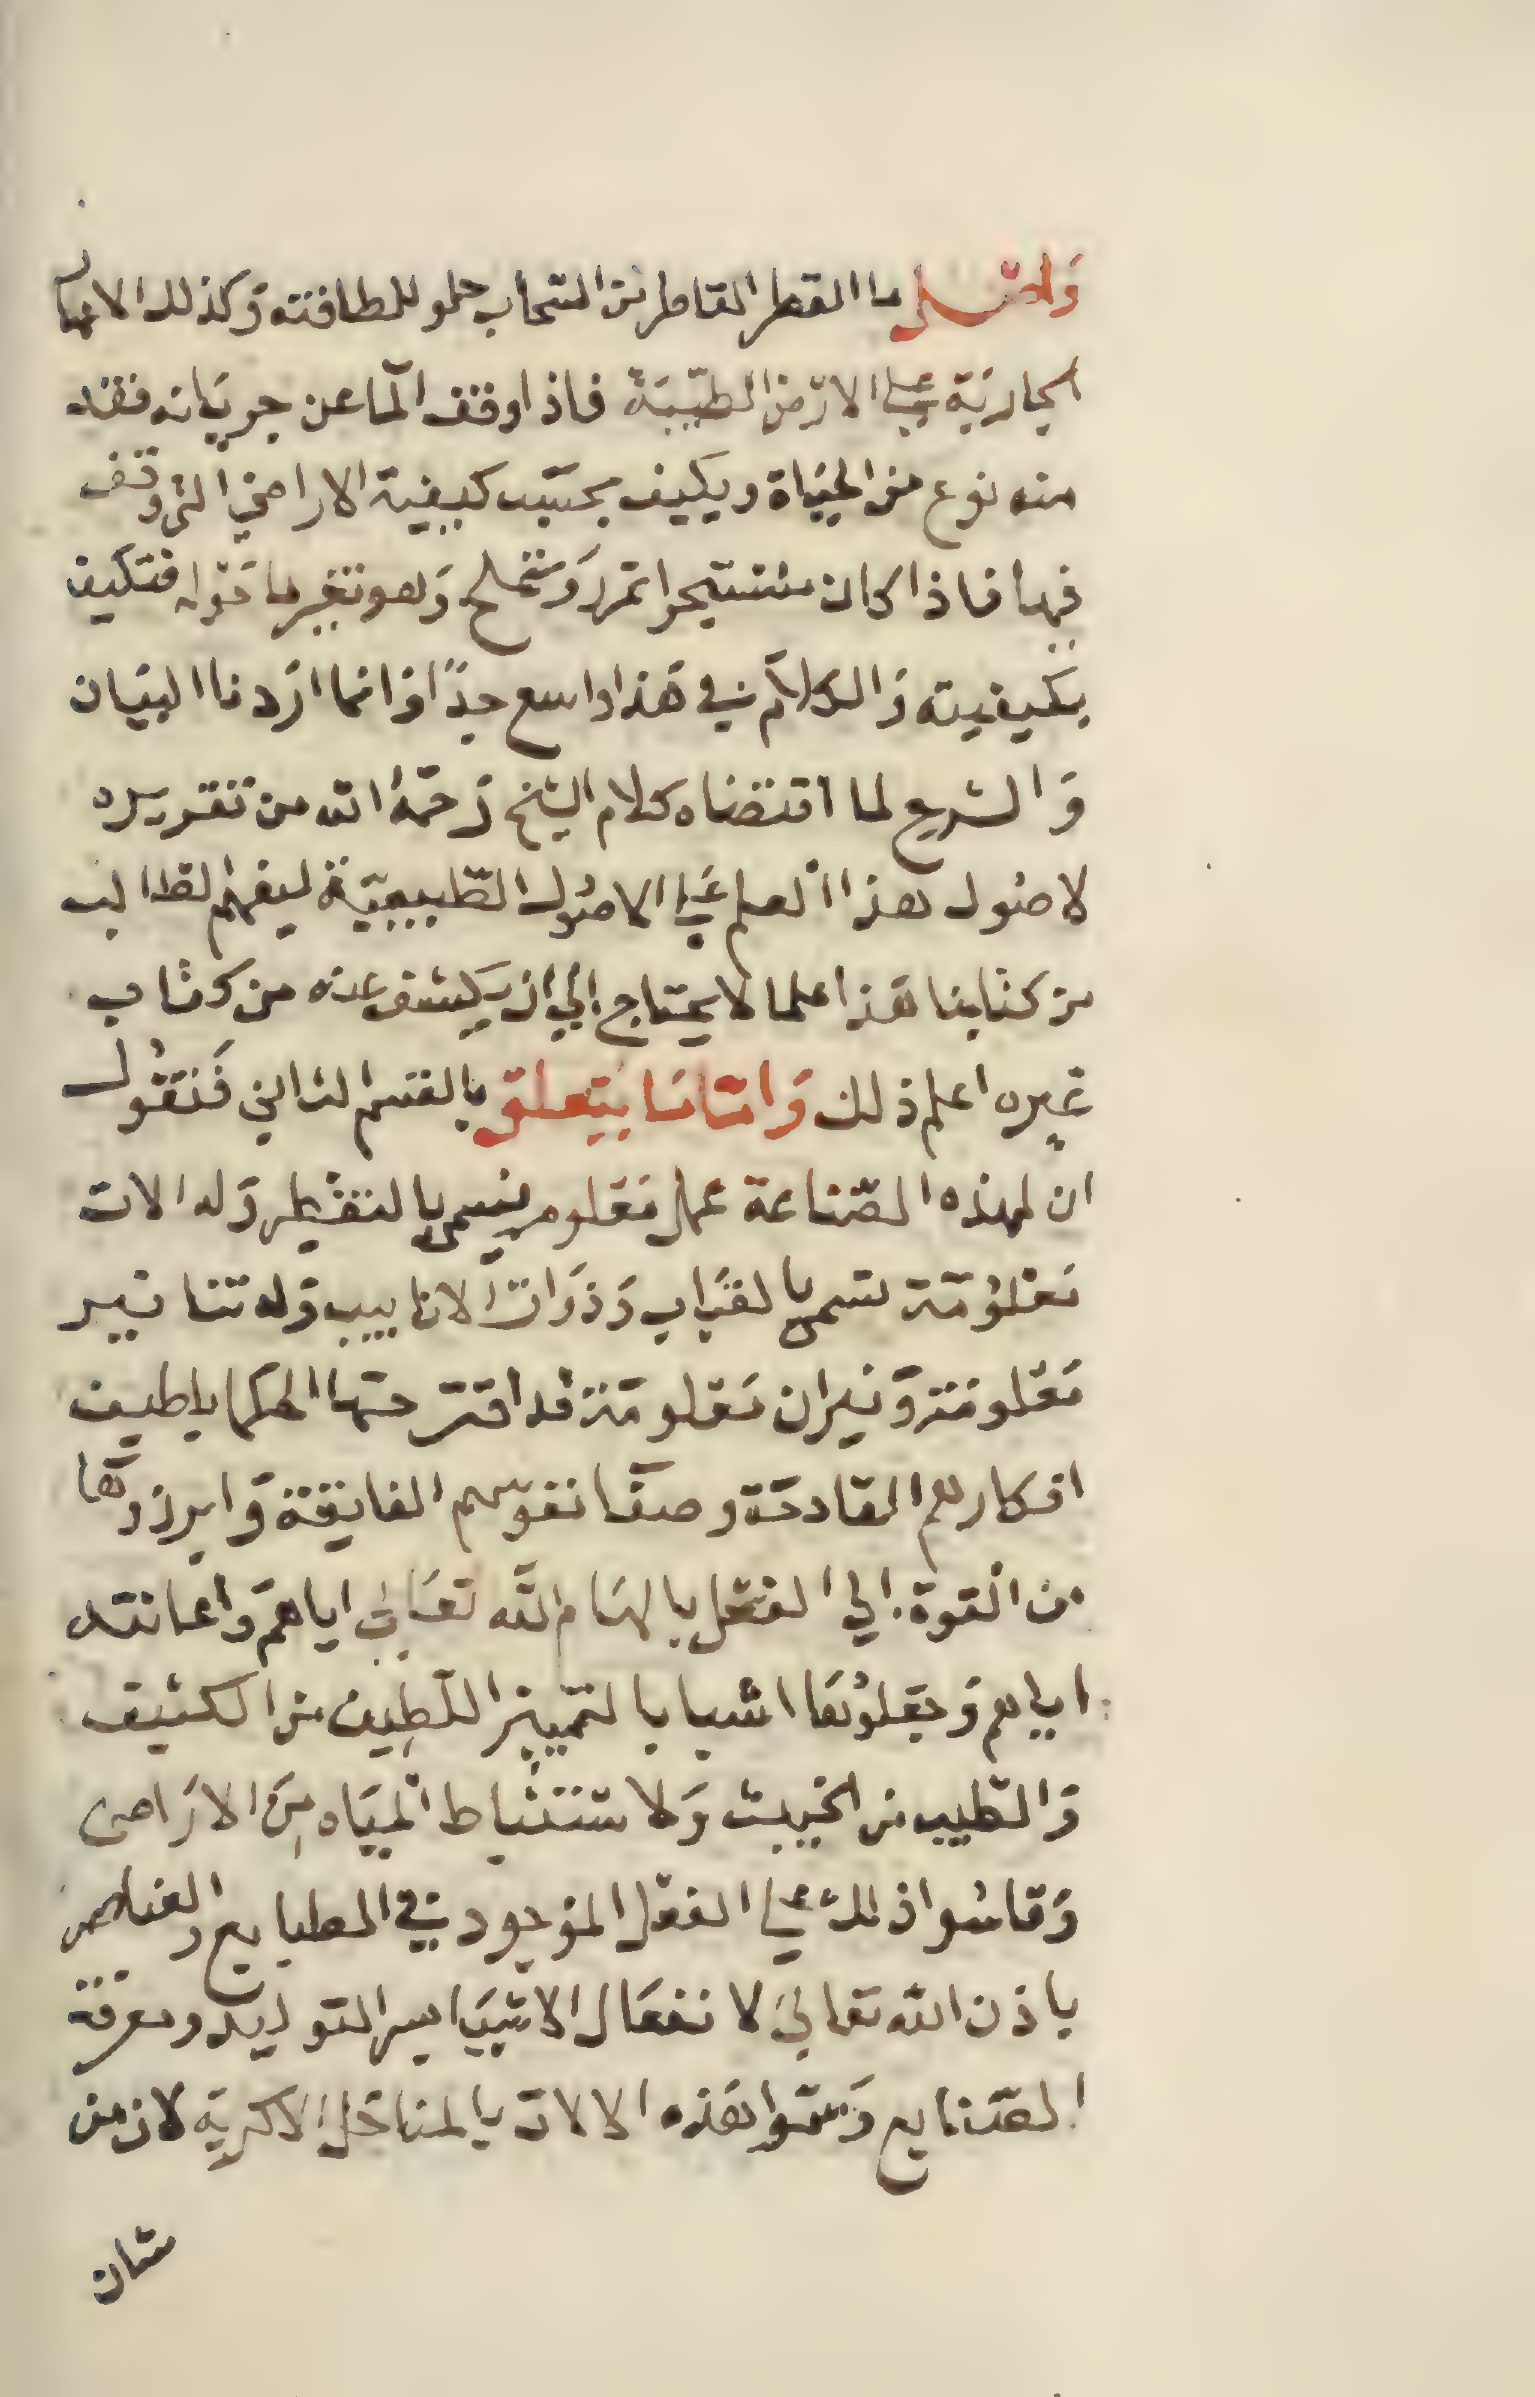 وَاصل ما القطر القاطر من السحاب حلو للطافته وَكذلك الانهار
الجاريَة علي الارض الطيّبَة فاذا وقف المآ عن جريَانه فقد
منه نوع من الحيَاة ويكيف بحسَب كيفية الاراضي التي وقف
فيها فاذا كان مستبحرا تمرر وَتملح وَهو تغير ما حَوله فتكيف
بكيفيته وَالكلام في هَذا واسع جدًا وَانما ارَدنا البيَان
وَالشرح لما اقتضاه كلام الشيخ رَحمَهُ الله من تقريره
لاصُول هذا العلم عَلي الاصُول الطّبيعيَّة ليفهم الطالب
من كتابنا هَذا علما لا يحتاج الي ان يَكشف عنه من كتاب
غيره اعلم ذلك وَامّا مَا يَتعلق بالقسم الثاني فَنَقُول
ان لهذه الصّناعة عمل مَعلوم يسمي بالتقطير وَله الات
مَعْلُومَة تسمي بالقبَاب وَذوَات الانابيب وَله تنانير
مَعلومَة وَنيران مَعلومَة قد اقترحتها الحكما بلطيف
افكارهم القادحَة وصفَآ نفوسهم الفايقة وَابرزوهَا
من القوة الي الفعْل بالهَام الله تعَالى اياهم وَاعانته
اياهم وَجعلوُهَا اسبابا لتمييز اللّطِيف من الكثيف
وَالطّيب من الخبيث وَلاستنبَاط المْيَاه مِنَ الارَاضى
وَقاسُوا ذلك علي الفعل الموَجود في الطبايع والعناصر
باذن الله تعالي لانفعَال الاشيَا بسر التوليد ومعرفة
الصّنايع وَسَمّوا هَذه الالات بالمناخَل الاكريَة لان من
شان